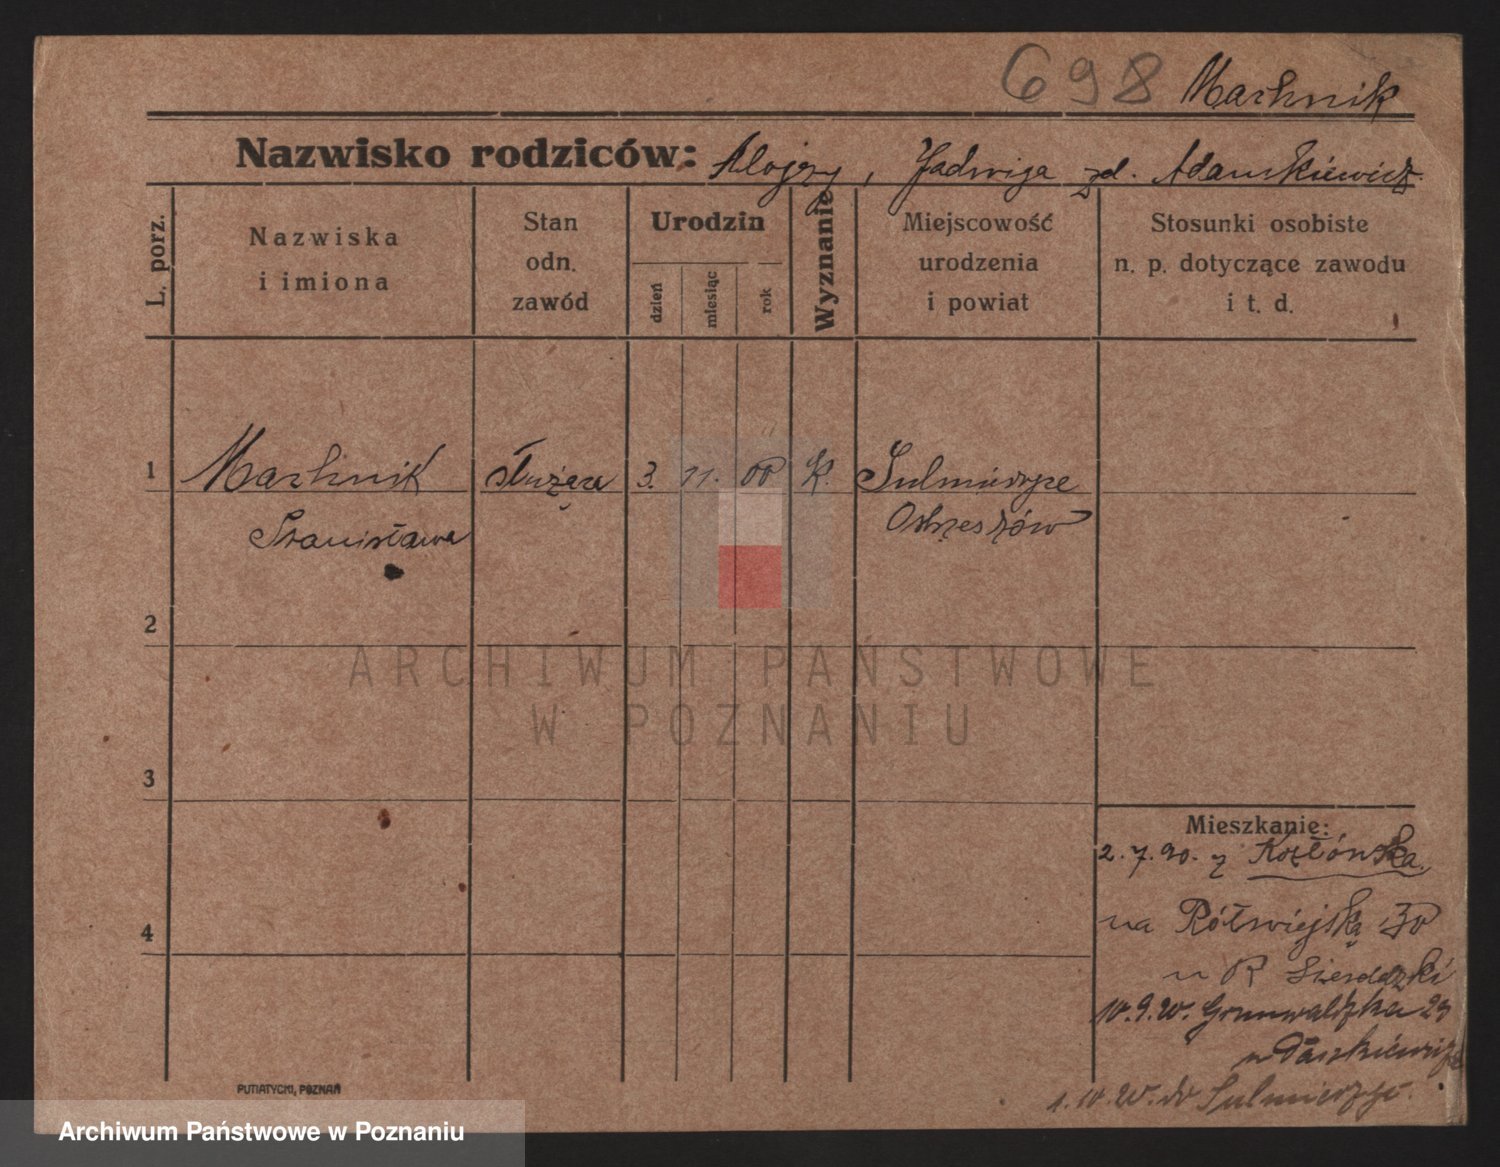 698 Marhnik
Nazwisko rodziców: Alojzy, Jadwiga zd. Adamkiewicz
L. porz.
Nazwiska
i imiona
Stan
odn.
zawód
Urodzin
dzień
miesiąc
rok
Wyznanie
Miejscowość
urodzenia
i powiat
Stosunki osobiste
n. p. dotyczące zawodu
i t. d.
1 Marhnik służąca 3. 11. 00 K. Sulmierzyce
Stanisława Ostrzeszów
2
ARCHIWUM PAŃSTWOWE
W POZNANIU
3
Mieszkanie:
2.7.20. z
4
na Półwiejską 30
u P. Sieradzki
10.9.20. Grunwaldzka 23
u
1.10.20. do Sulmierzyc.
PUTIATYCKI, POZNAŃ
Archiwum Państwowe w Poznaniu